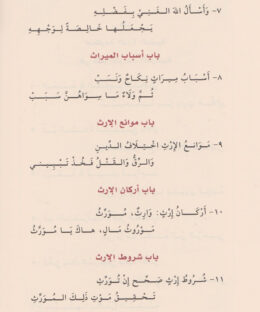 ٧- وَأَسْأَلُ اللهَ الغَنِيَّ بِفَضْلِهِ
يَجْعَلُهَا خَالِصَةً لِوَجْهِهِ
باب أسباب الميراث
٨- أَسْبَابُ مِيرَاثٍ نِكَاحٌ وَنَسَبْ
ثُمَّ وَلَاءٌ مَا سِوَاهُنَّ سَبَبْ
باب موانع الإرث
٩- مَوَانِعُ الإِرْثِ اخْتِلَافُ الدِّينِ
وَالرِّقُّ وَالقَتْلُ فَخُذْ تَبْيِينِي
باب أركان الإرث
١٠- أَرْكَانُ إِرْثٍ: وَارِثٌ، مُوَرِّثُ
مَوْرُوثُ مَالٍ، هَاكَ يَا مُوَرِّثُ
باب شروط الإرث
١١- شُرُوطُ إِرْثٍ صَحِّحٍ إِنْ تُوَرِّثِ
تَحْقِيقُ مَوْتِ ذَلِكَ المُوَرِّثِ